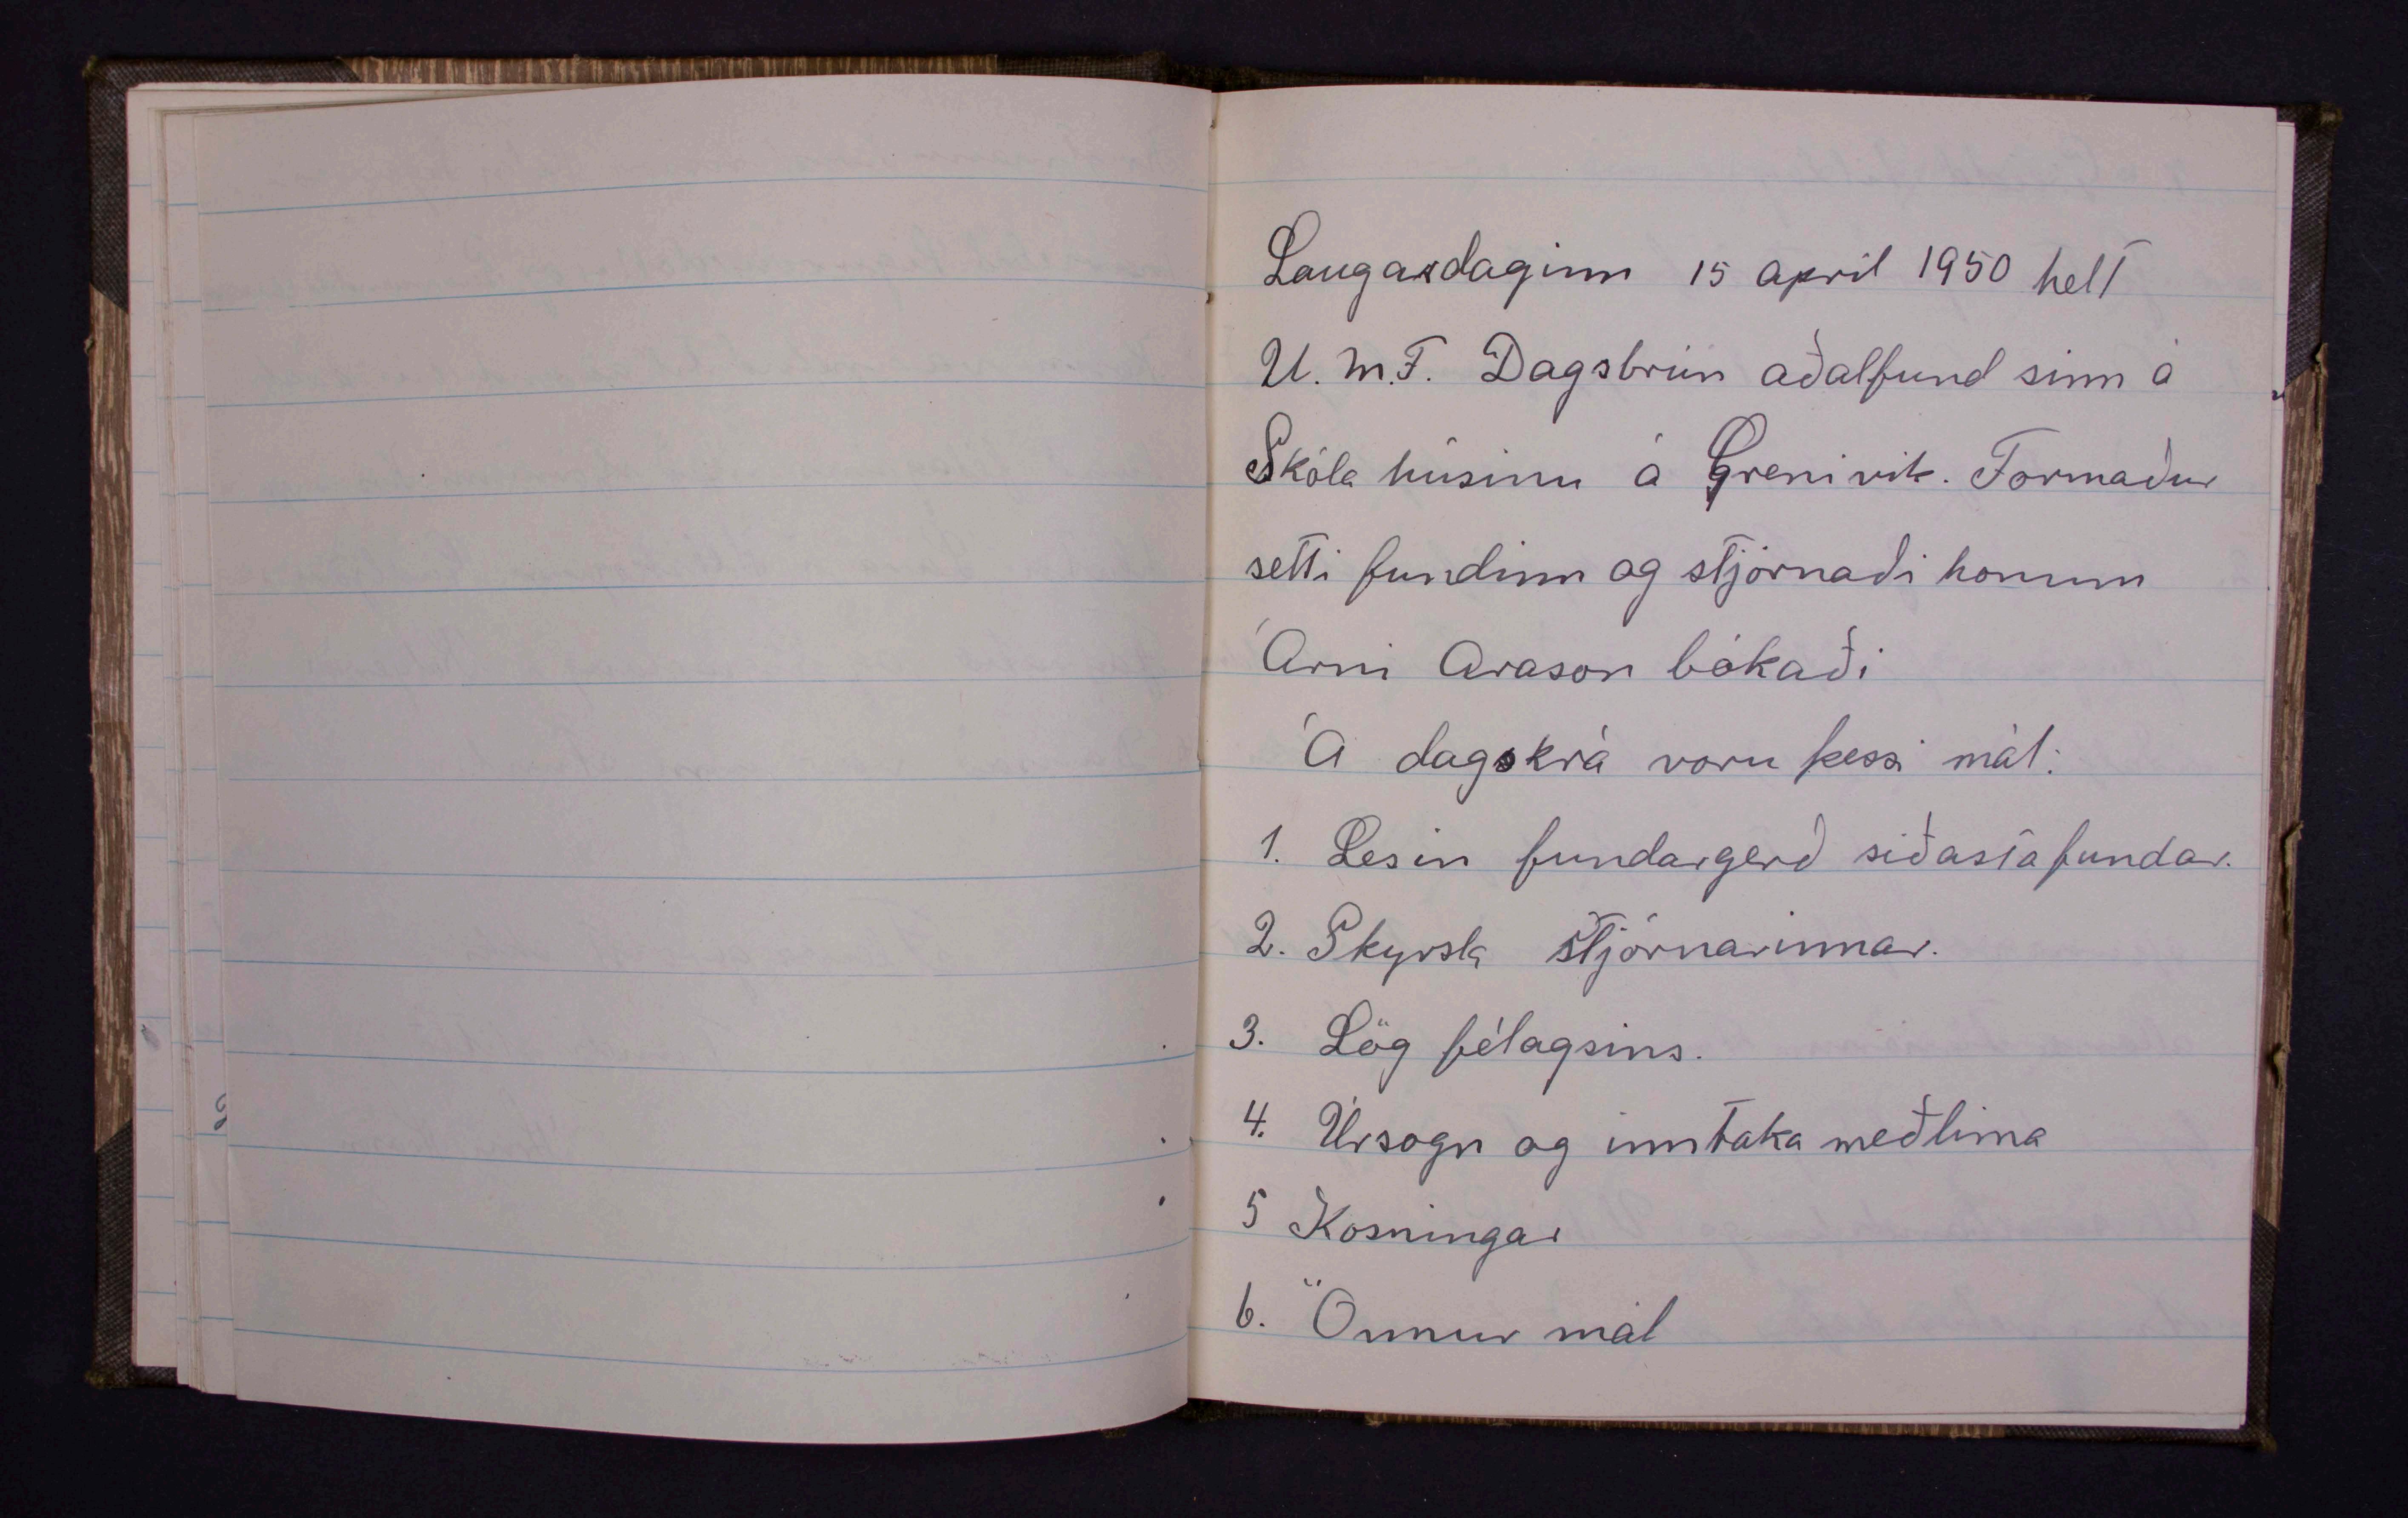 Laugardaginn 15 april 1950 helt
U.M.F. Dagsbrún aðalfund sinn á
Skóla húsinu á Grenivik. Formaður
setti fundinn og stjórnaði honum
Árni Arason bókaði
Á dagskrá voru þessi mál:
1. Lesin fundargerð siðasta fundar.
2. Skyrsla stjórnarinnar.
3. Lög félagsins.
4. Úrsogn og inntaka meðlima
5 Kosningar
6. Önnur mál